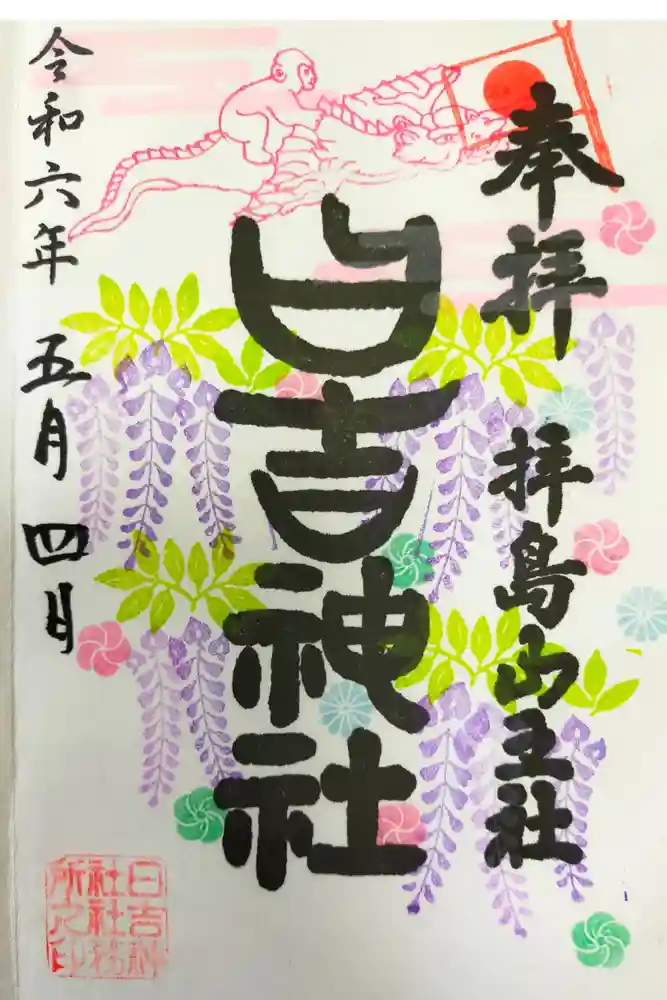 奉拝 拝島山王社
日吉神社
令和六年 五月 四日
日吉神
社社務
所之印